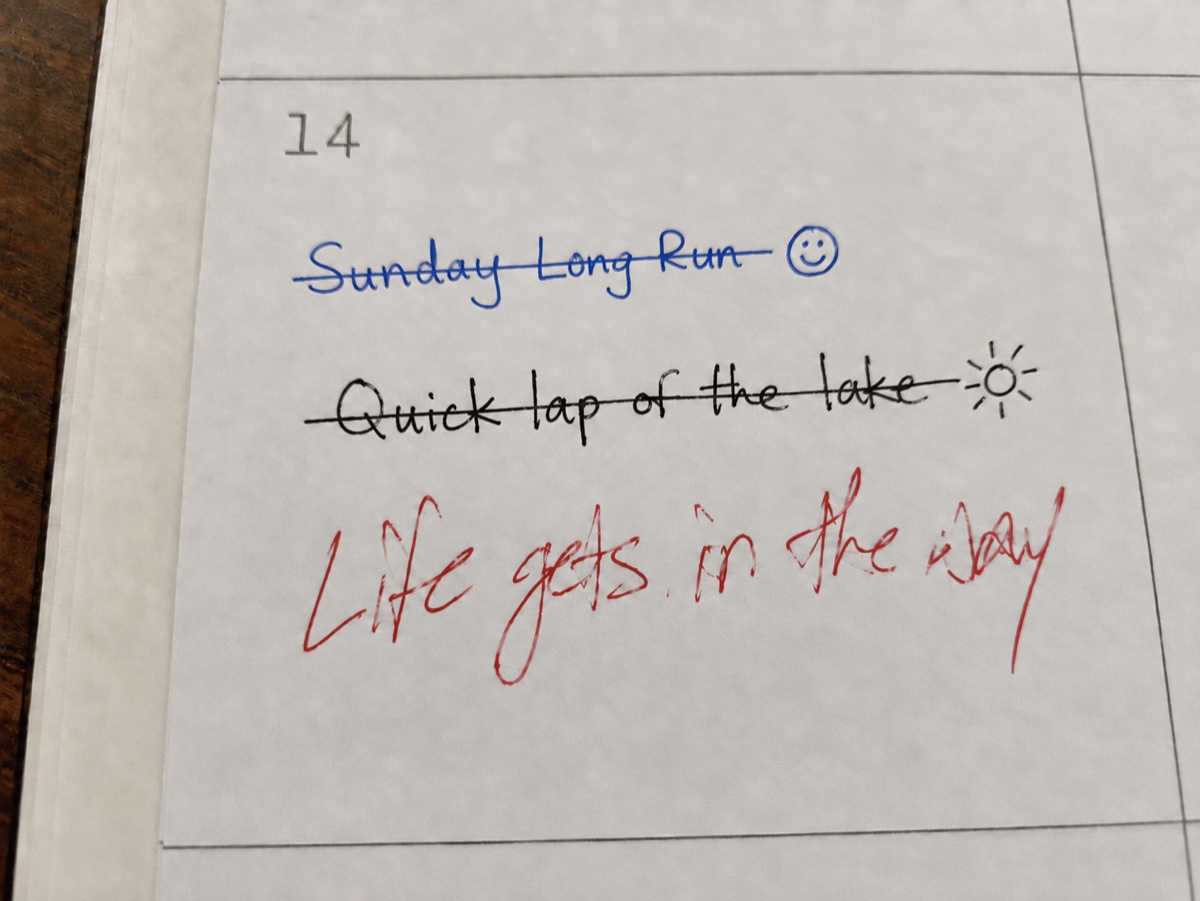 14
Sunday Long Run
Quick lap of the lake
Life gets in the way